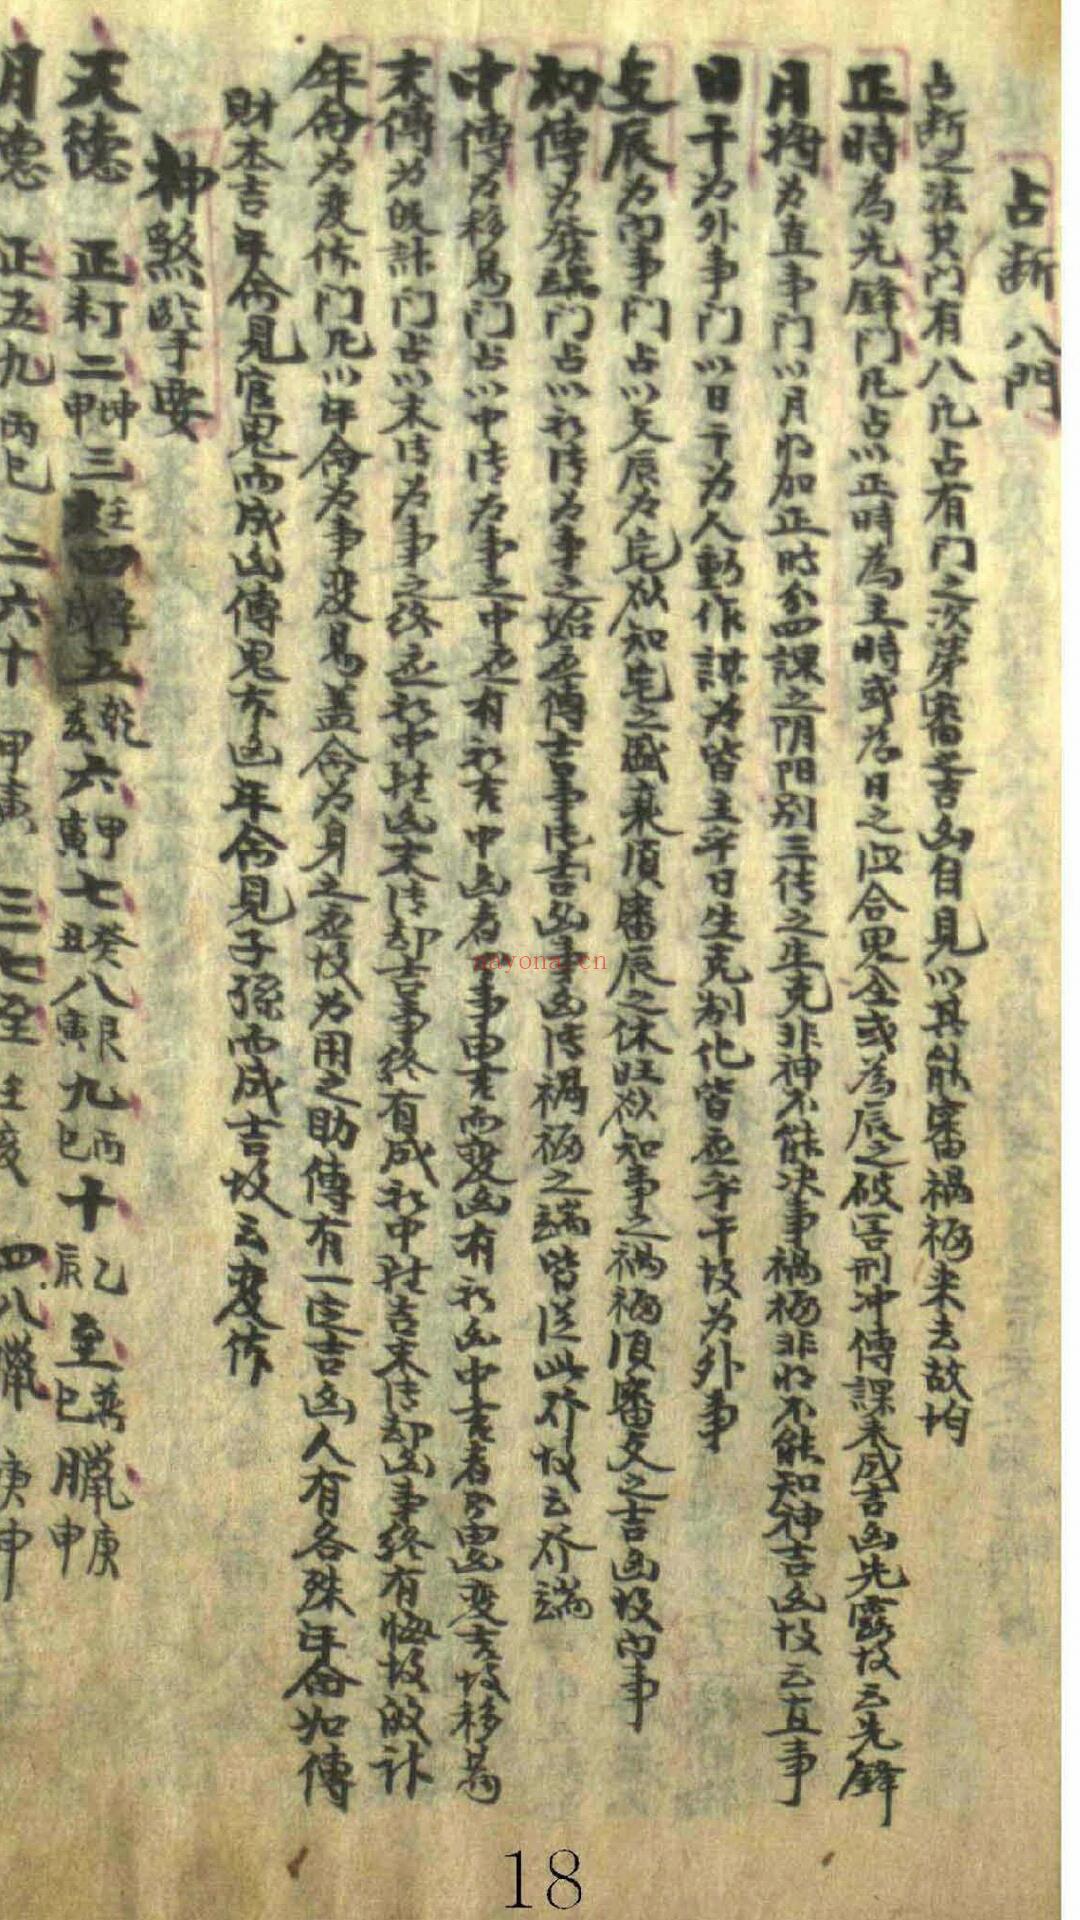 占斷八門
占斷之法其门有八凡占有门之次第審之吉凶自見以其能審禍福来去故均
正時為先鋒门凡占以正時為主時或為日之 合鬼 或為辰之破害刑冲傳課未成吉凶先露故云先鋒
月将为直事门以月将加正时分四課之阴阳别三传之生克非神不能决事禍福非将不能知神吉凶故云直事
日干为外事门以日干为人動作謀为皆主乎日生克制化皆 乎干故为外事
支辰为内事门占以支辰为宅欲知宅之盛衰須審辰之休旺欲知事之禍福須審支之吉凶故内事
初傳为發端门占以初传为事之始 傳吉事 吉凶事凶传禍福之端皆従此 故云 端
中傳为移易门占以中传为事之中也有初吉中凶者事由吉而变凶有初凶中吉者 由凶变吉故移易
末傳为 計门占以末传为事之终也初中 凶末传却吉事终有成初中 吉末传却凶事终有悔故 计
年命为变体门凡以年命为事变易盖命为身之 故为用之助傳有一定吉凶人有各殊年命如傳
財本吉年命見官鬼而成凶傳鬼 年命見子孫而成吉故云变体
神煞 要
天德 正 丁 二 坤申 三 壬 四 辛 五 乾亥 六 甲寅 七 癸丑 八 艮寅 九 丙巳 十 乙辰 至 巽巳 臘 庚申
月德 正五九 丙巳 二六十 甲寅 三七至 壬亥 四八臘 庚申
18
nayona.cn